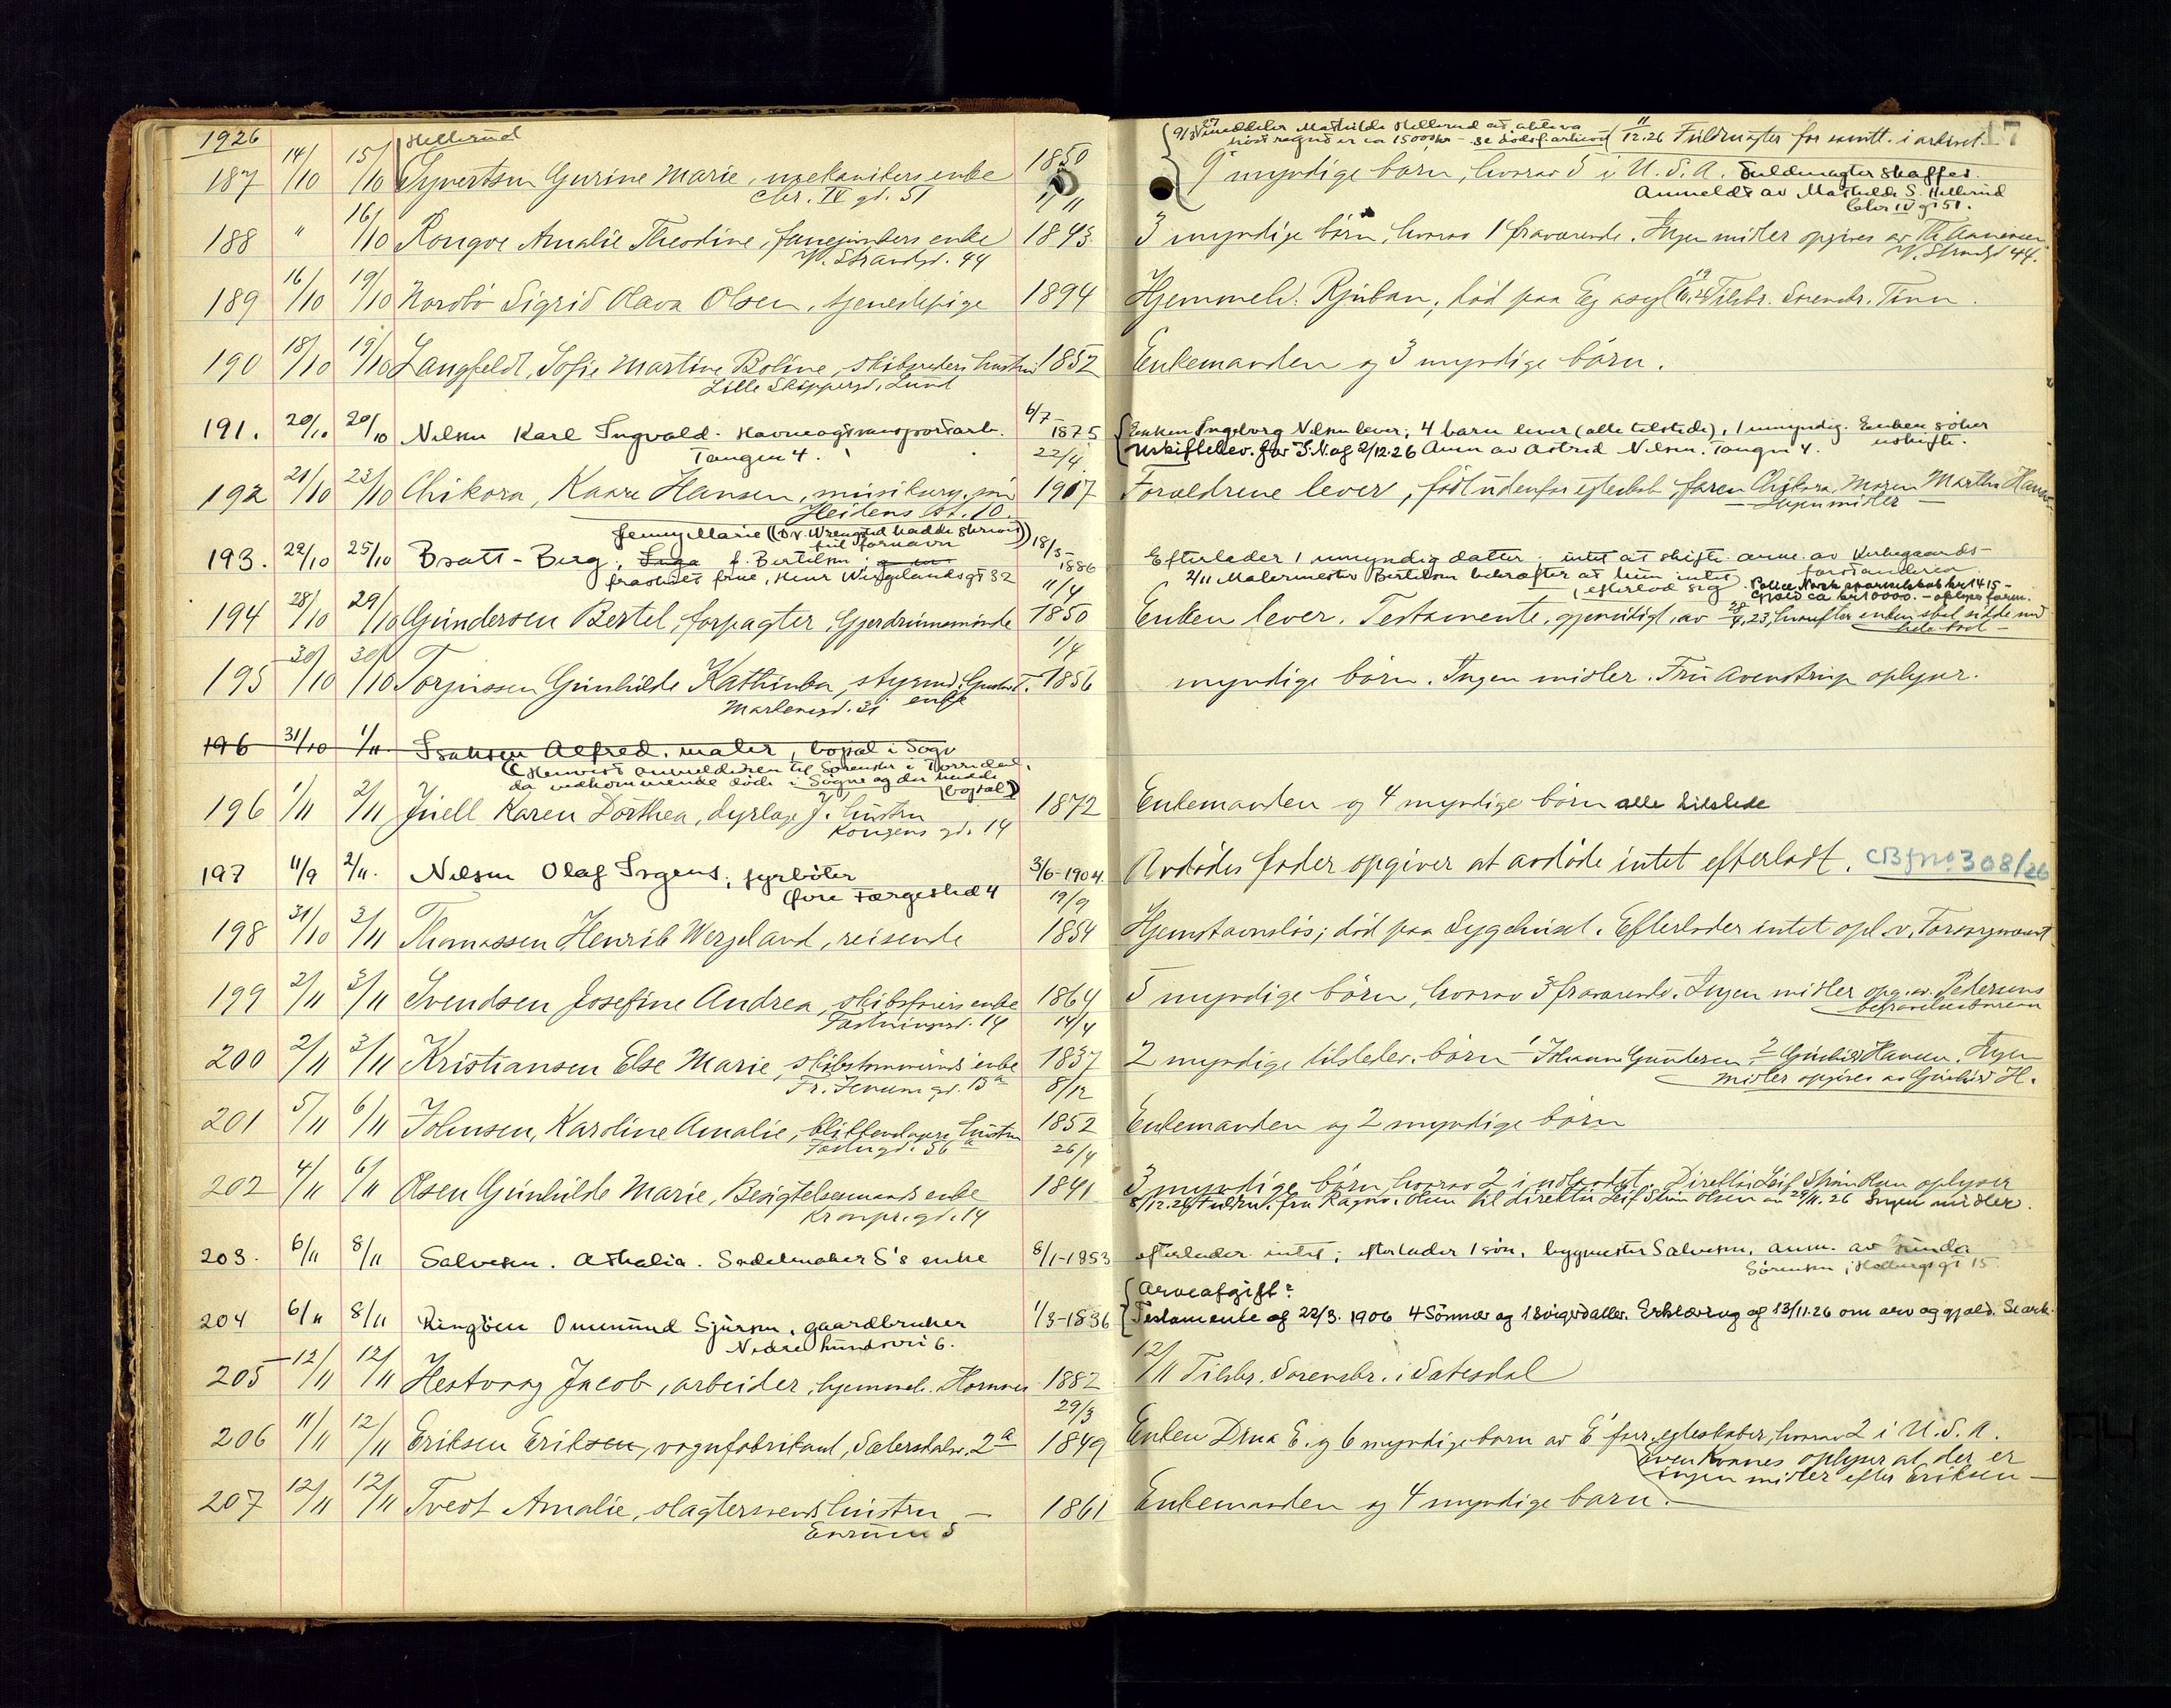 1926
17
Hellerud
9/3 27 meddeler Mathilde Hellerud at aktiva
11/12.26 Fuldmagter for samtl. i arkivet.
187 14/10 15/10 Syvertsen Gurine Marie, mekanikers enke 1850 9 myndige børn, hvorav 5 i U.S.A. Fuldmagter skaffes.
Chr. IV gt. 51
Anmeldt av Mathilde S. Hellerud
Chr IV gt 51.
188 " 16/10 Rongve Amalie Theodine, enke 1843 3 myndige børn, hvorav 1 fraværende. Ingen midler opgives av Th. Aanensen
V. Strandgt. 44
V. Strandgt 44.
189 16/10 19/10 Nordbø Sigrid Olava Olsen, tjenestepige 1894 Hjemmeh. Rjukan, død paa Eg asyl Tilskr. Sorenskr. Tinn.
190 18/10 19/10 Langfeldt, Sofie Martine Boline, skibsreders hustru 1852 Enkemanden og 3 myndige børn.
Lille Skippergt. Lund
191. 20/10 20/10 Nilsen Karl Ingvald. Havneogtransportarb. 6/7 1875 Enken Ingeborg Nilsen lever, 4 barn lever (alle tilstede), 1 umyndig. Enken søker
uskifte.
Tangen 4.
Uskiftebev. for I.N. af 2/12.26 Anm av Astrid Nilsen. Tangen 4.
192 21/10 23/10 Chikora, Kaare Hansen, søn 22/4 1907 Forældrene lever, født udenfor egteskab, faren Chikora, moren Martha Hansen
Heidens gt. 10.
Ingen midler
Jenny Marie (O.V. Wrengsted hadde skrevet
til fornavn)
193. 22/10 25/10 Bratt-Berg, Inga f. Bertilsen 18/5-1886 Efterlader 1 umyndig datter; intet at skifte anm. av Kirkegaards-
forstanderen
fraskilt frue, Henr Wergelandsgt 32
2/11 Malermester Bertilsen bekræfter at hun intet
efterlod sig.
Police Norsk kr 1415-
Gjæld ca kr 10000.-
194 28/10 29/10 Gundersen Bertel, forpagter, Gjerdrumsminde 11/4 1850 Enken lever. Testamente, gjensidigt, av 28/4.23, hvorefter enken skal sidde med
hele boet
195 30/10 30/10 Torjussen Gunhilde Kathinka, styrmd. Gustav T. 1/4 1856 myndige børn. Ingen midler. Fru Avenstrup oplyser.
enke
Markensgt. 31
196 31/10 1/11 Isaksen Alfred. maler, bopæl i Søgne
(Henvist anmelderen til Sorenskr i Torridal.
da vedkommende døde i Søgne og der hadde
bopæl)
196 1/11 2/11 Juell Karen Dorthea, dyrlæge J.' hustru 1872 Enkemanden og 4 myndige børn alle tilstede
Kongens gt. 14
197 11/9 2/11. Nilsen Olaf Jrgens, fyrbøter 3/6-1904. Avdødes fader opgiver at avdøde intet efterlodt. CB jno 308/26
Øvre Færgested 4
198 31/10 3/11 Thomassen Henrik Wergeland, reisende 19/9 1854 Hjemstavnsløs; død paa Sygehuset. Efterlader intet opl. v. Forsorgsvæsenet
199 2/11 3/11 Svendsen Josefine Andrea, skibsførers enke 1864 5 myndige børn, hvorav 3 fraværende. Ingen midler opg. av Pedersens
begravelsesbureau
Festningsgt. 14
200 2/11 3/11 Kristiansen Else Marie, skibstømmermds enke 14/4 1837 2 myndige tilstedev. børn 1 Johanne Gundersen 2 Gunhild Hansen. Ingen
midler opgives av Gunhild H.
Tr. gt. 13a
201 5/11 6/11 Johnsen, Karoline Amalie, blikkenslagers hustru 8/12 1852 Enkemanden og 2 myndige børn
Festngt. 36a
202 4/11 6/11 Olsen Gunhilde Marie, Besigtelsesmands enke 26/4 1841 3 myndige børn hvorav 2 i utlandet. Direktør Leif Strøm Olsen oplyser
Kronpr. gt. 14
8/12.26 Fuldm. fra Ragnv. Olsen til direktør Leif Strøm Olsen av 29/11.26 Ingen midler.
203. 6/11 8/11 Salvesen. Athalia. Sadelmaker S's enke 8/1-1853 efterlader intet; efterlader 1 søn, bygmester Salvesen, anm. av Gunda
Sørensen, Holbergsgt 15.
Arveafgift?
204 6/11 8/11 Ringøen Ommund Sjursen, gaardbruker 1/3-1836 Testamente af 22/3. 1906 4 Sønner og 1 Svigerdatter. Erklæring af 13/11.26 om arv og gjæld. Se ark.
Nedre Lundsvei 6.
205 12/11 12/11 Hestvaag Jacob, arbeider, hjemmeh. Hornnes 1882 12/11 Tilskr. Sorenskr. i Setesdal
206 11/11 12/11 Eriksen Eriksen, vognfabrikant, Setersdalsv. 2a 29/3 1849 Enken Dina E. og 6 myndige børn av E' før. egteskaber, hvorav 2 i U.S.A.
Even Konnes oplyser at der er
ingen midler efter Eriksen
207 12/11 12/11 Tveit Amalie, slagtersvends hustru 1861 Enkemanden og 4 myndige børn.
Enrum 5